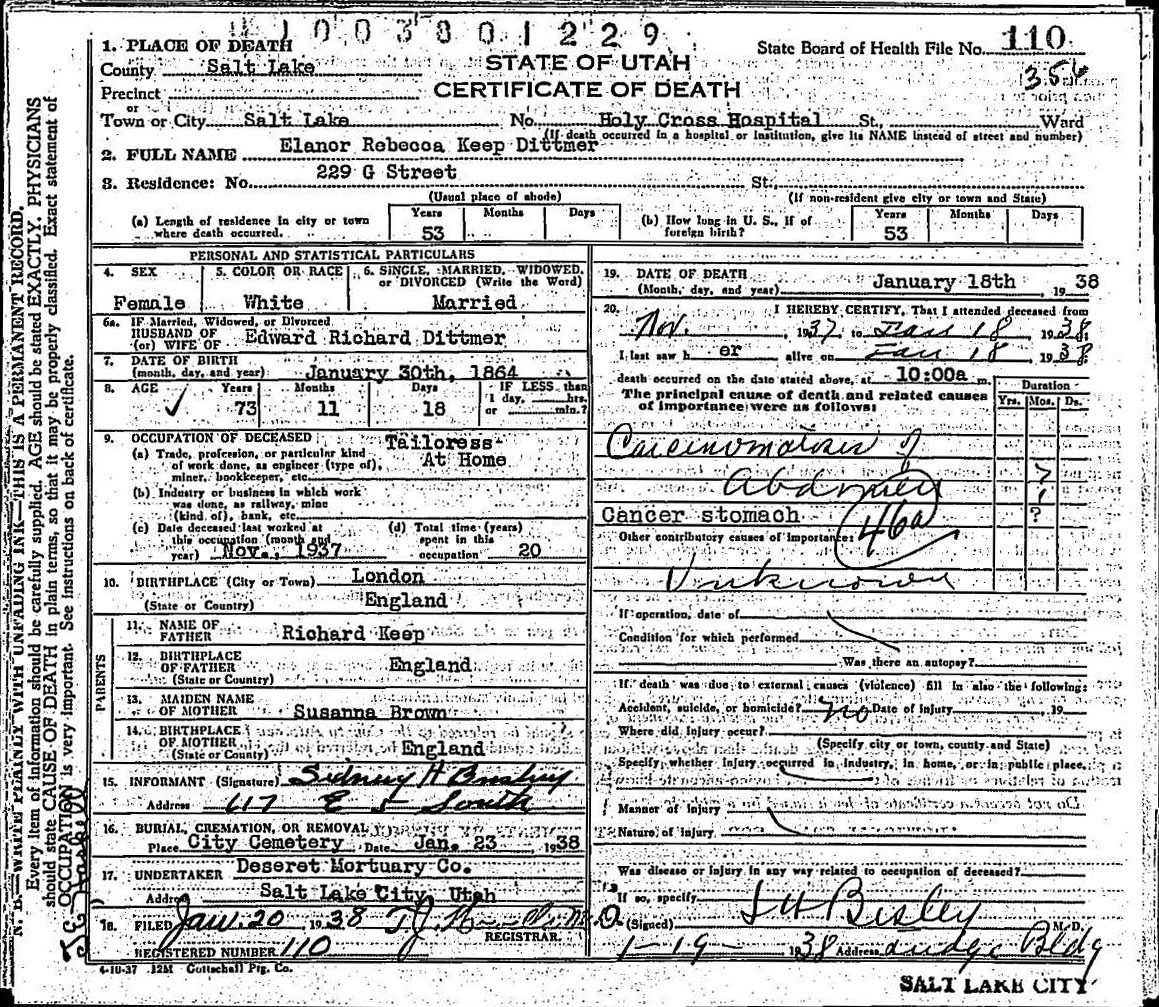 1003801229
1. PLACE OF DEATH
State Board of Health File No. 110
County Salt Lake
STATE OF UTAH
356
Precinct
CERTIFICATE OF DEATH
or
Town or City Salt Lake No. Holy Cross Hospital St., Ward
(If death occurred in a hospital or institution, give its NAME instead of street and number)
2. FULL NAME Elanor Rebecca Keep Dittmer
3. Residence: No. 229 G Street St.,
(Usual place of abode) (If non-resident give city or town and State)
(a) Length of residence in city or town where death occurred. Years 53 Months Days
(b) How long in U. S., if of foreign birth? Years 53 Months Days
PERSONAL AND STATISTICAL PARTICULARS
4. SEX Female
5. COLOR OR RACE White
6. SINGLE, MARRIED, WIDOWED, or DIVORCED (Write the Word) Married
6a. IF Married, Widowed, or Divorced
HUSBAND OF
(or) WIFE OF Edward Richard Dittmer
7. DATE OF BIRTH
(month, day, and year) January 30th, 1864
8. AGE Years 73 Months 11 Days 18 IF LESS than 1 day, hrs. or min.?
9. OCCUPATION OF DECEASED Tailoress
(a) Trade, profession, or particular kind At Home
of work done, as engineer (type of),
miner, bookkeeper, etc.
(b) Industry or business in which work
was done, as railway, mine
(kind of), bank, etc.
(c) Date deceased last worked at
this occupation (month and
year) Nov., 1937
(d) Total time (years)
spent in this
occupation 20
10. BIRTHPLACE (City or Town) London
(State or Country) England
PARENTS
11. NAME OF FATHER Richard Keep
12. BIRTHPLACE OF FATHER England
(State or Country)
13. MAIDEN NAME OF MOTHER Susanna Brown
14. BIRTHPLACE OF MOTHER England
(State or Country)
15. INFORMANT (Signature) Sidney H
Address 617 E 5 South
16. BURIAL, CREMATION, OR REMOVAL
Place City Cemetery Date Jan. 23 1938
17. UNDERTAKER Deseret Mortuary Co.
Address Salt Lake City, Utah
18. FILED Jan. 20 1938 T J
REGISTRAR.
REGISTERED NUMBER 110
4-10-37 12M Gottschall Ptg. Co.
19. DATE OF DEATH
(Month, day, and year) January 18th 1938
20. I HEREBY CERTIFY, That I attended deceased from
Nov. 1937 to Jan 18 1938
I last saw her alive on Jan 18 1938
death occurred on the date stated above, at 10:00a m.
The principal cause of death and related causes
of importance were as follows:
Duration
Yrs. Mos. Ds.
Carcinomatosis of
Abdomen
Cancer stomach ?
46a
Other contributory causes of importance:
Unknown
If operation, date of
Condition for which performed
Was there an autopsy?
If death was due to external causes (violence) fill in also the following:
Accident, suicide, or homicide? No Date of injury 19
Where did injury occur?
(Specify city or town, county and State)
Specify whether injury occurred in industry, in home, or in public place.
Manner of injury
Nature of injury
Was disease or injury in any way related to occupation of deceased?
If so, specify
(Signed) Bisley M. D.
1-19-1938 Address Judge Bldg
SALT LAKE CITY
N. B.—WRITE PLAINLY WITH UNFADING INK—THIS IS A PERMANENT RECORD.
Every item of information should be carefully supplied. AGE should be stated EXACTLY. PHYSICIANS
should state CAUSE OF DEATH in plain terms, so that it may be properly classified. Exact statement of
OCCUPATION is very important. See instructions on back of certificate.